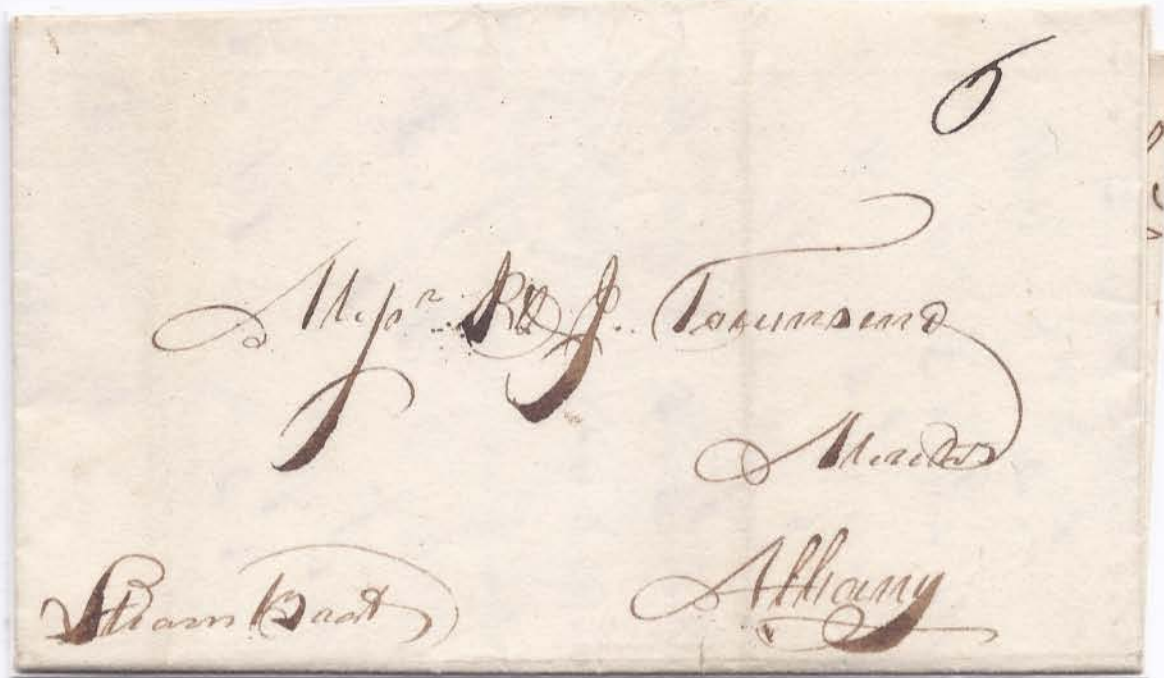 6
Messrs. I & J. Townsend
Merchts
Albany
Steam Boat